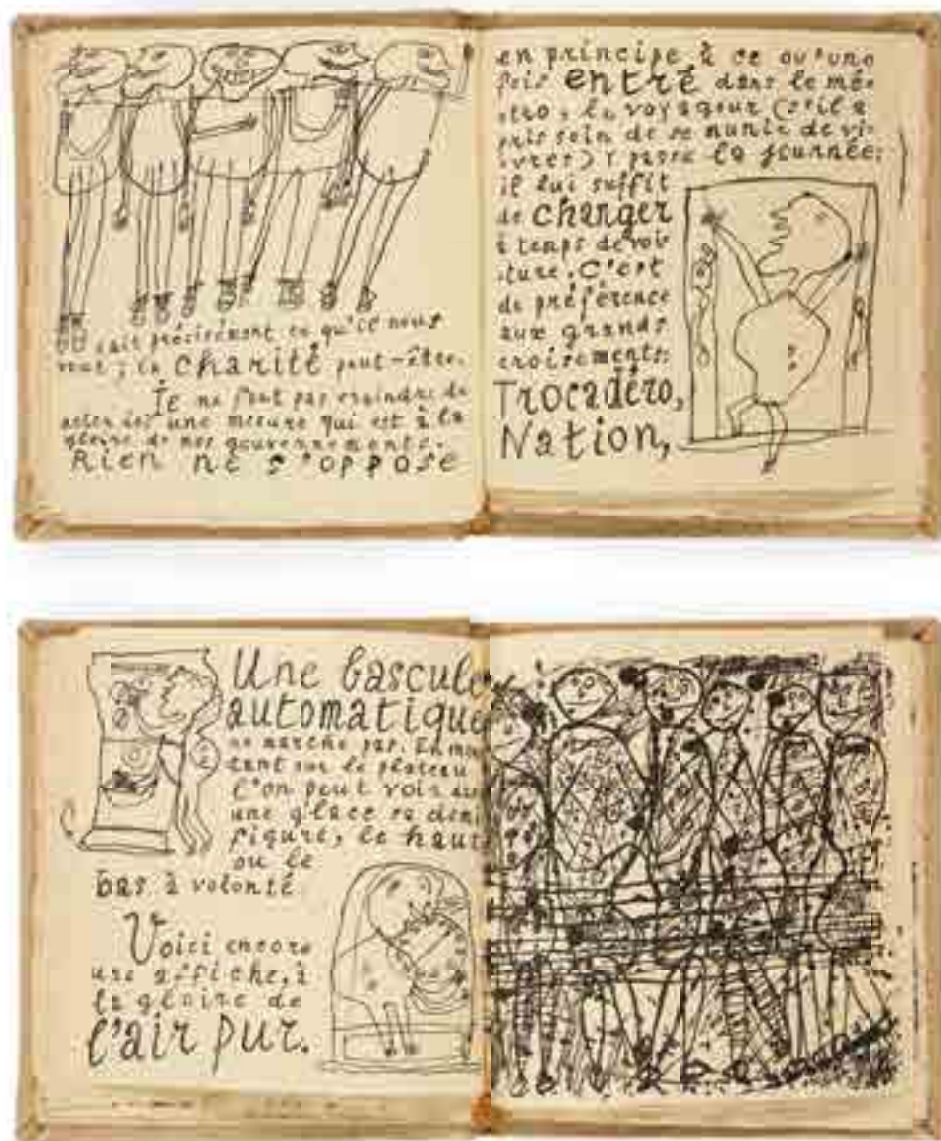 fait précisément ce qu'il nous
vaut ; la charité peut-être.
Il ne faut pas craindre de
noter ici une mesure qui est à la
gloire de nos gouvernements.
Rien ne s'oppose
en principe à ce qu'une
fois entré dans le mé-
tro, le voyageur (s'il a
pris soin de se munir de vi-
vres) y passe la journée:
il lui suffit
de changer
à temps de voi-
ture. C'est
de préférence
aux grands
croisements:
Trocadéro,
Nation,
Une bascule
automatique
ne marche pas. En mon
tant sur le plateau
l'on peut voir dans
une glace sa demi
figure, le haut
ou le
bas à volonté
Voici encore
une affiche, à
la gloire de
l'air pur.